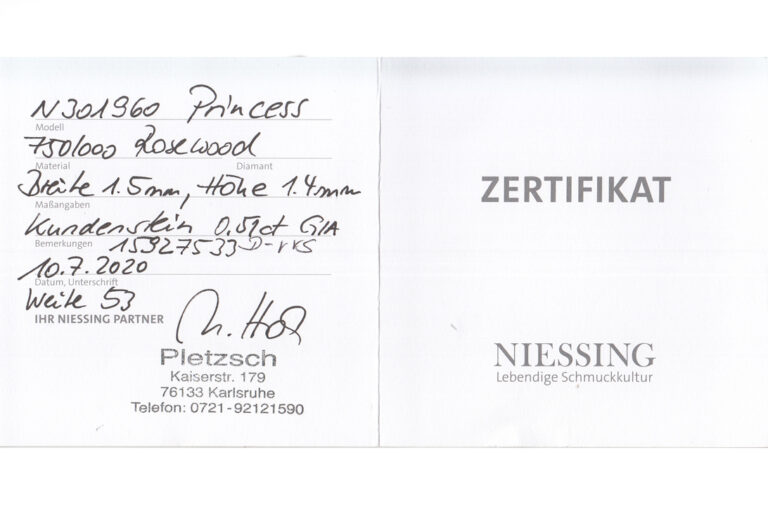 N301960 Princess
Modell
750/000 Rosewood
Material Diamant
Breite 1.5mm, Höhe 1.4mm
Maßangaben
Kundenstein 0.51ct GIA
Bemerkungen 15327533 D-VVS
10.7.2020
Datum, Unterschrift
Weite 53
IHR NIESSING PARTNER
Pletzsch
Kaiserstr. 179
76133 Karlsruhe
Telefon: 0721-92121590
ZERTIFIKAT
NIESSING
Lebendige Schmuckkultur